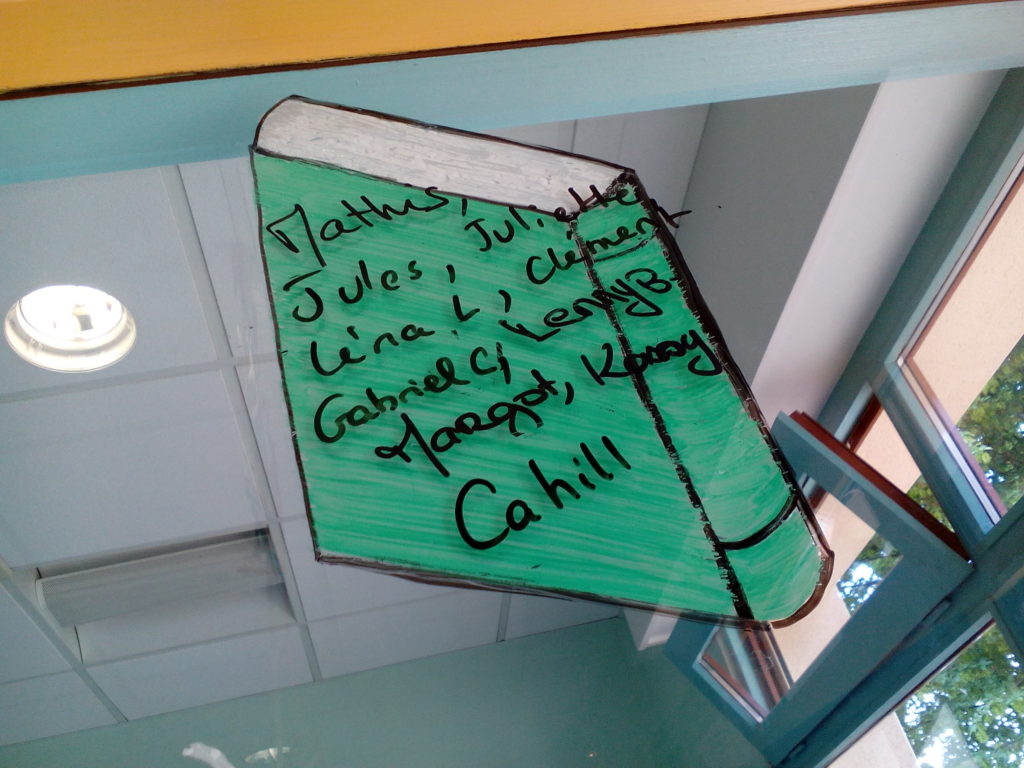 Mathis, Juliette
Jules, Clément
Léna L, Lenny B
Gabriel C,
Margot,
Cahill